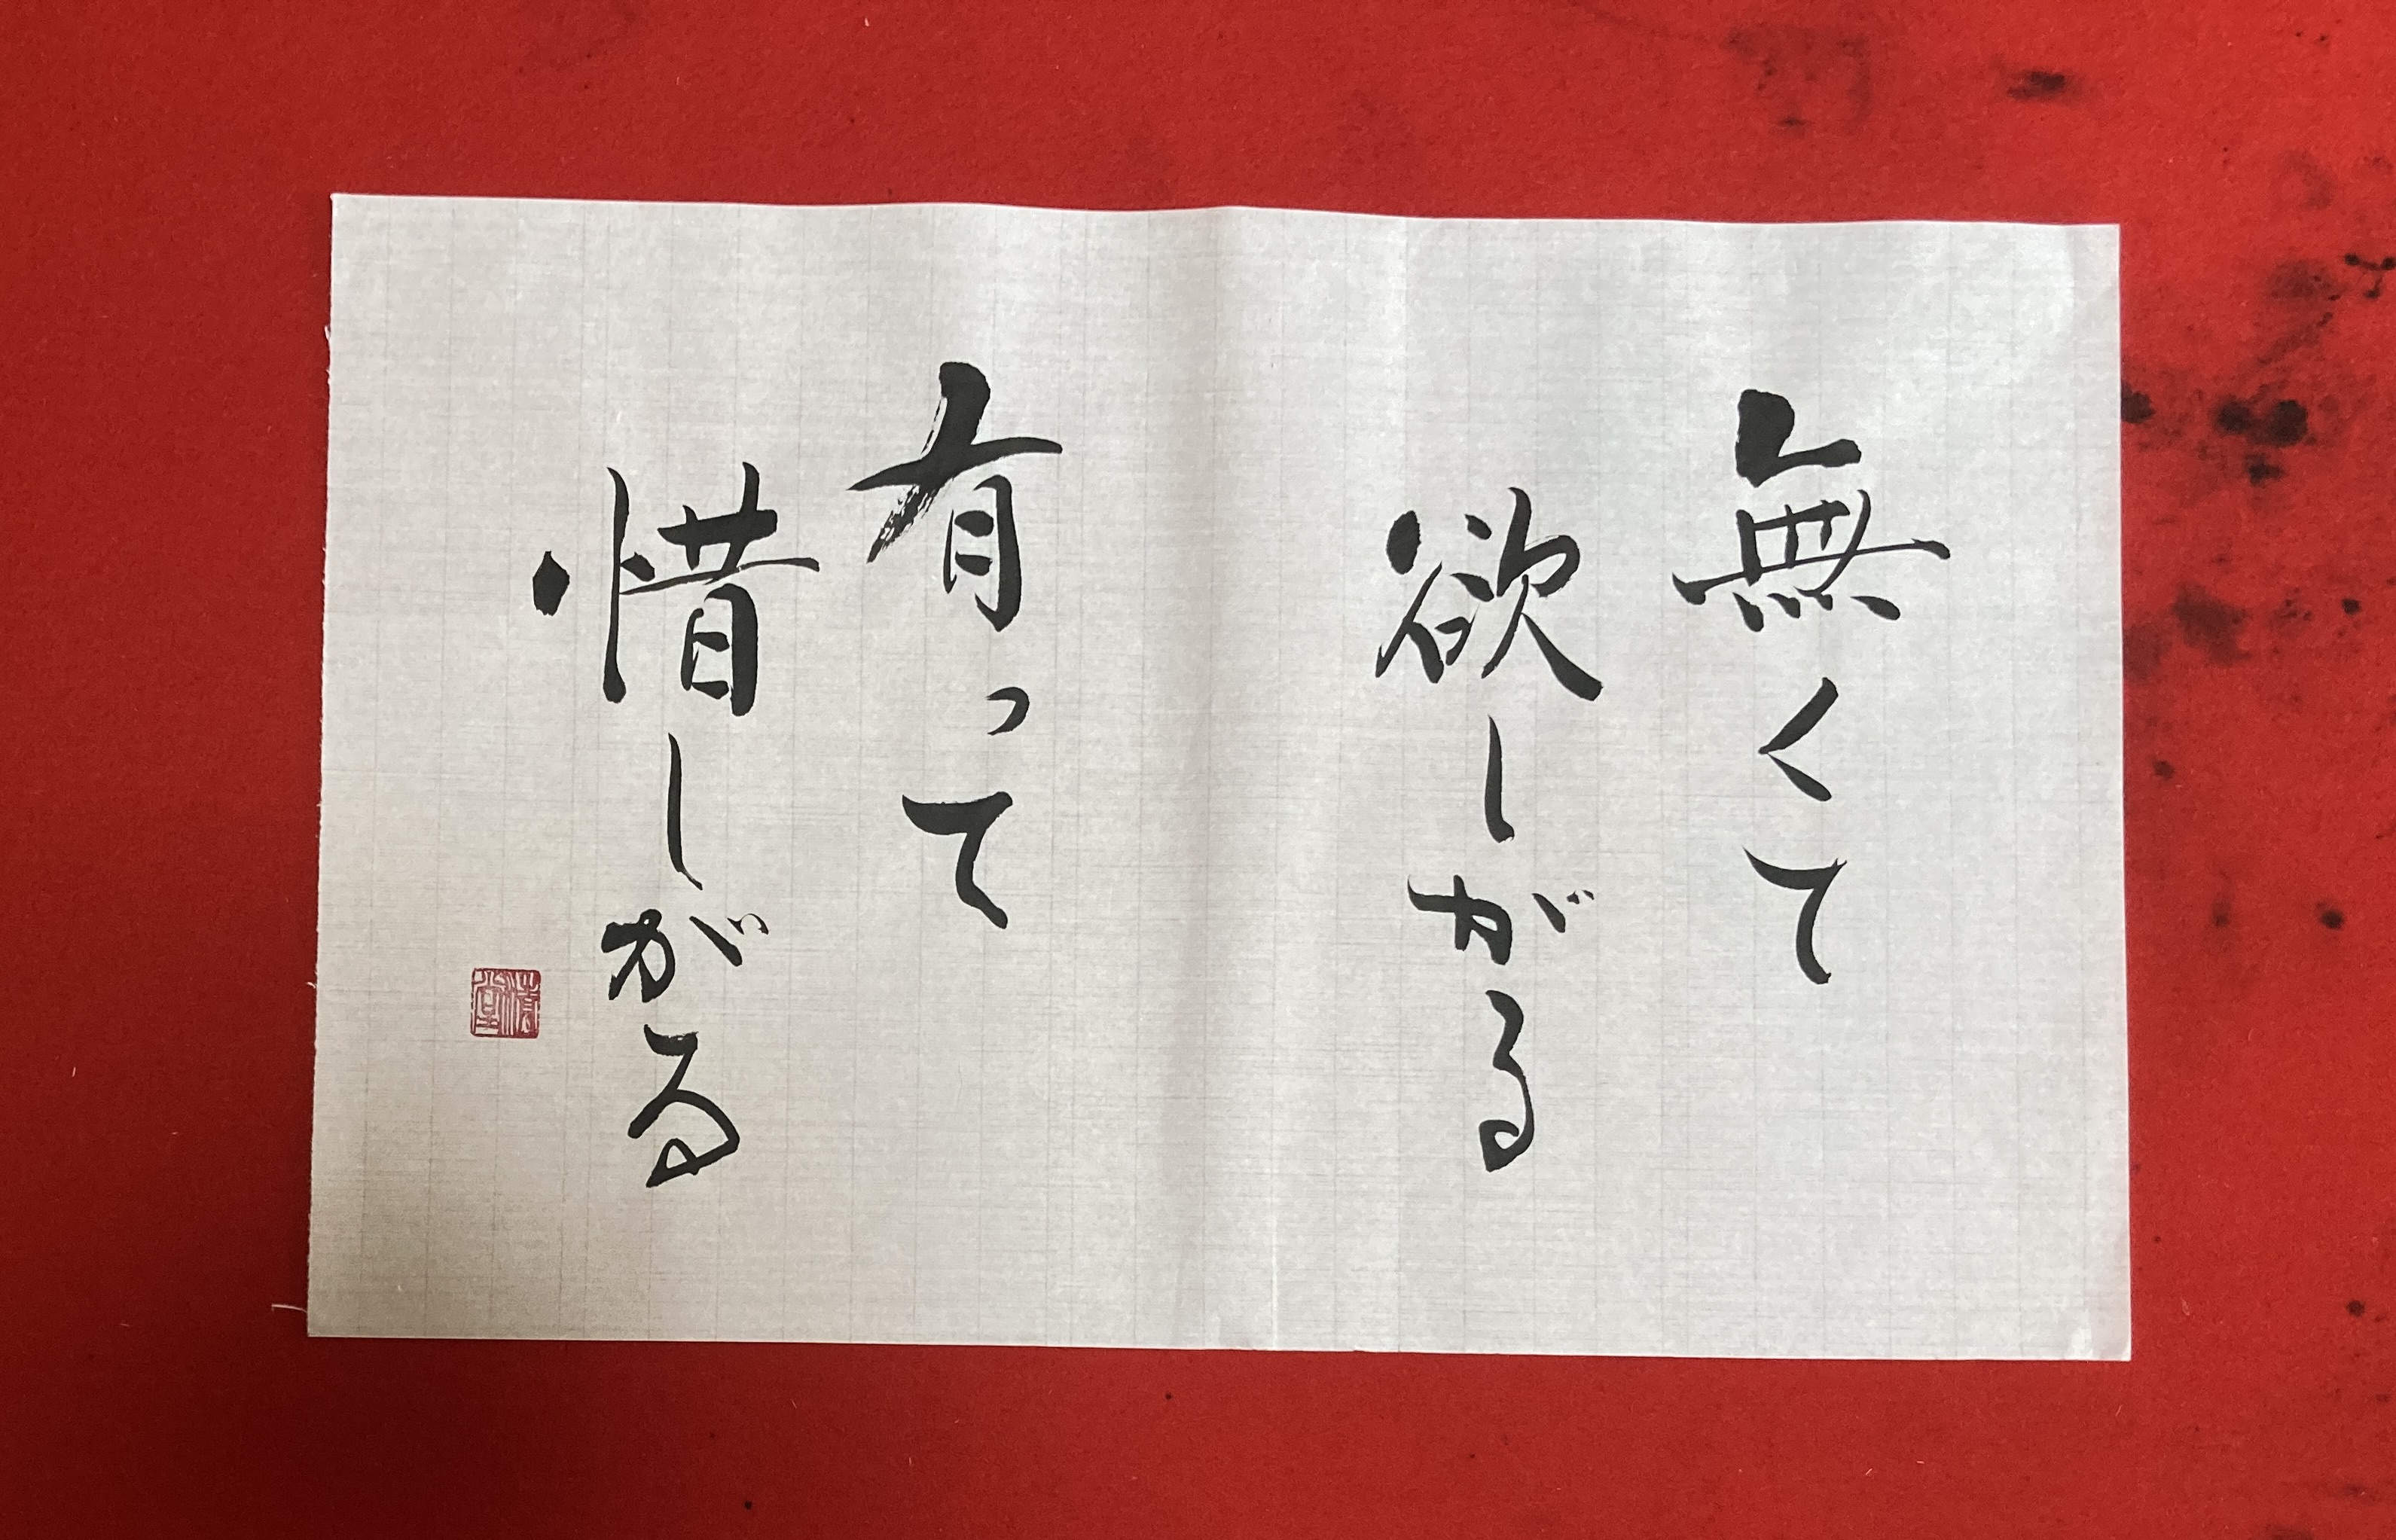 無くて
欲しがる
有って
惜しがる